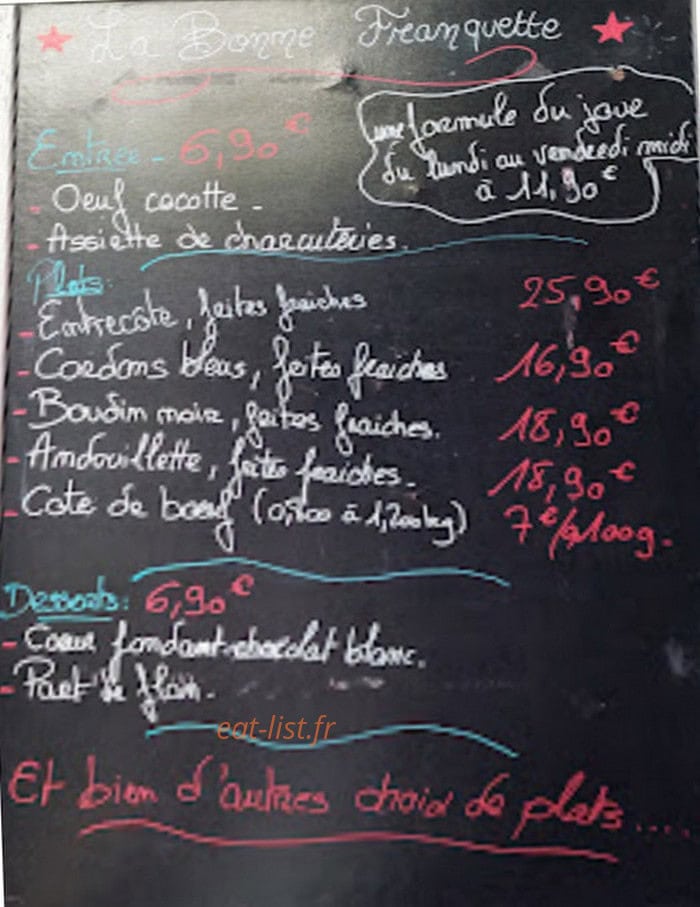 La Bonne Franquette
une formule du jour
du lundi au vendredi midi
à 11,90€
Entrée - 6,90€
- Oeuf cocotte -
- Assiette de charcuteries.
Plats:
- Entrecôte, frites fraiches 25,90€
- Cordons bleus, frites fraiches 16,90€
- Boudin noir, frites fraiches. 18,90€
- Andouillette, frites fraiches. 18,90€
- Cote de boeuf (0,800 à 1,200kg) 7€/100g.
Desserts: 6,90€
- Coeur fondant chocolat blanc.
- Part de flan.
eat-list.fr
Et bien d'autres choix de plats.....